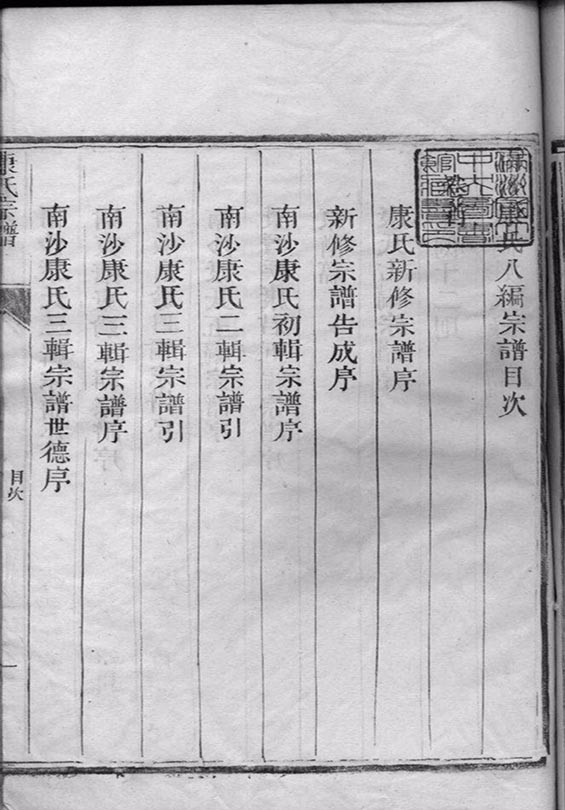 康氏八編宗譜目次
康氏新修宗譜序
新修宗譜告成序
南沙康氏初輯宗譜序
南沙康氏二輯宗譜引
南沙康氏三輯宗譜引
南沙康氏三輯宗譜序
南沙康氏三輯宗譜世德序
康氏宗譜
目次
一